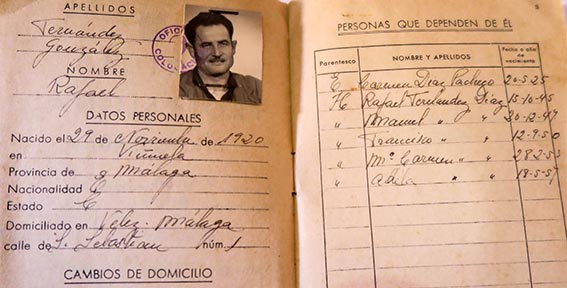 APELLIDOS
Fernández
González
NOMBRE
Rafael
OFICI
COLOCAC
DATOS PERSONALES
Nacido el 29 de Noviembre de 1920
en Viñuela
Provincia de Málaga
Nacionalidad E
Estado C
Domiciliado en Vélez-Málaga
calle de S. Sebastian núm. 1
CAMBIOS DE DOMICILIO
PERSONAS QUE DEPENDEN DE ÉL
Parentesco NOMBRE Y APELLIDOS Fecha o año de nacimiento
E Carmen Díaz Pacheco 20-5-25
H Rafael Fernández Díaz 15-10-45
" Manuel " " 20-12-47
" Francisco " " 12-9-50
" Mª Carmen " " 28-2-53
" " " 18-5-5